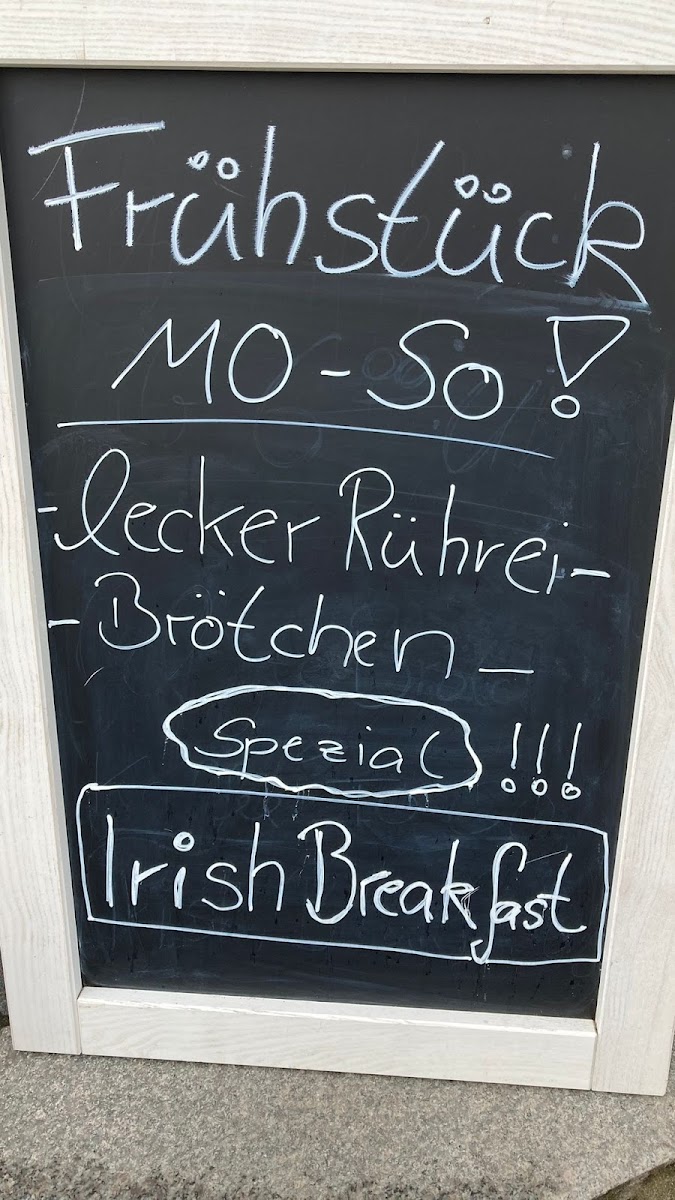 Frühstück
MO - So !
- lecker Rührei -
- Brötchen -
Spezial !!!
Irish Breakfast